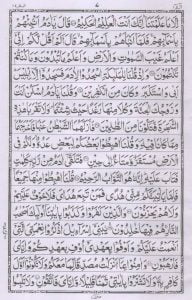 الٓمّٓ ١
٧
اِلَّا مَا عَلَّمْتَنَا اِنَّكَ اَنْتَ الْعَلِيْمُ الْحَكِيْمُ قَالَ يٰٓاٰدَمُ اَنْۢبِئْهُمْ
بِاَسْمَآئِهِمْ فَلَمَّآ اَنْۢبَاَهُمْ بِاَسْمَآئِهِمْ قَالَ اَلَمْ اَقُلْ لَّكُمْ اِنِّيْٓ
اَعْلَمُ غَيْبَ السَّمٰوٰتِ وَالْاَرْضِ وَاَعْلَمُ مَا تُبْدُوْنَ وَمَا كُنْتُمْ
تَكْتُمُوْنَ وَاِذْ قُلْنَا لِلْمَلٰٓئِكَةِ اسْجُدُوْا لِاٰدَمَ فَسَجَدُوْٓا اِلَّآ
اِبْلِيْسَ اَبٰى وَاسْتَكْبَرَ وَكَانَ مِنَ الْكٰفِرِيْنَ وَقُلْنَا يٰٓاٰدَمُ اسْكُنْ
اَنْتَ وَزَوْجُكَ الْجَنَّةَ وَكُلَا مِنْهَا رَغَدًا حَيْثُ شِئْتُمَا وَلَا تَقْرَبَا هٰذِهِ
الشَّجَرَةَ فَتَكُوْنَا مِنَ الظّٰلِمِيْنَ فَاَزَلَّهُمَا الشَّيْطٰنُ عَنْهَا فَاَخْرَجَهُمَا
مِمَّا كَانَا فِيْهِ وَقُلْنَا اهْبِطُوْا بَعْضُكُمْ لِبَعْضٍ عَدُوٌّ وَلَكُمْ فِى
الْاَرْضِ مُسْتَقَرٌّ وَّمَتَاعٌ اِلٰى حِيْنٍ فَتَلَقّٰٓى اٰدَمُ مِنْ رَّبِّهٖ كَلِمٰتٍ
فَتَابَ عَلَيْهِ اِنَّهٗ هُوَ التَّوَّابُ الرَّحِيْمُ قُلْنَا اهْبِطُوْا مِنْهَا جَمِيْعًا
فَاِمَّا يَاْتِيَنَّكُمْ مِّنِّيْ هُدًى فَمَنْ تَبِعَ هُدَايَ فَلَا خَوْفٌ عَلَيْهِمْ
وَلَا هُمْ يَحْزَنُوْنَ وَالَّذِيْنَ كَفَرُوْا وَكَذَّبُوْا بِاٰيٰتِنَآ اُولٰٓئِكَ اَصْحٰبُ
النَّارِ هُمْ فِيْهَا خٰلِدُوْنَ يٰبَنِيْٓ اِسْرَآءِيْلَ اذْكُرُوْا نِعْمَتِيَ الَّتِيْٓ
اَنْعَمْتُ عَلَيْكُمْ وَاَوْفُوْا بِعَهْدِيْٓ اُوْفِ بِعَهْدِكُمْ وَاِيَّايَ
فَارْهَبُوْنِ وَاٰمِنُوْا بِمَآ اَنْزَلْتُ مُصَدِّقًا لِّمَا مَعَكُمْ وَلَا تَكُوْنُوْٓا اَوَّلَ
كَافِرٍۢ بِهٖ وَلَا تَشْتَرُوْا بِاٰيٰتِيْ ثَمَنًا قَلِيْلًا وَّاِيَّايَ فَاتَّقُوْنِ وَلَا تَلْبِسُوا